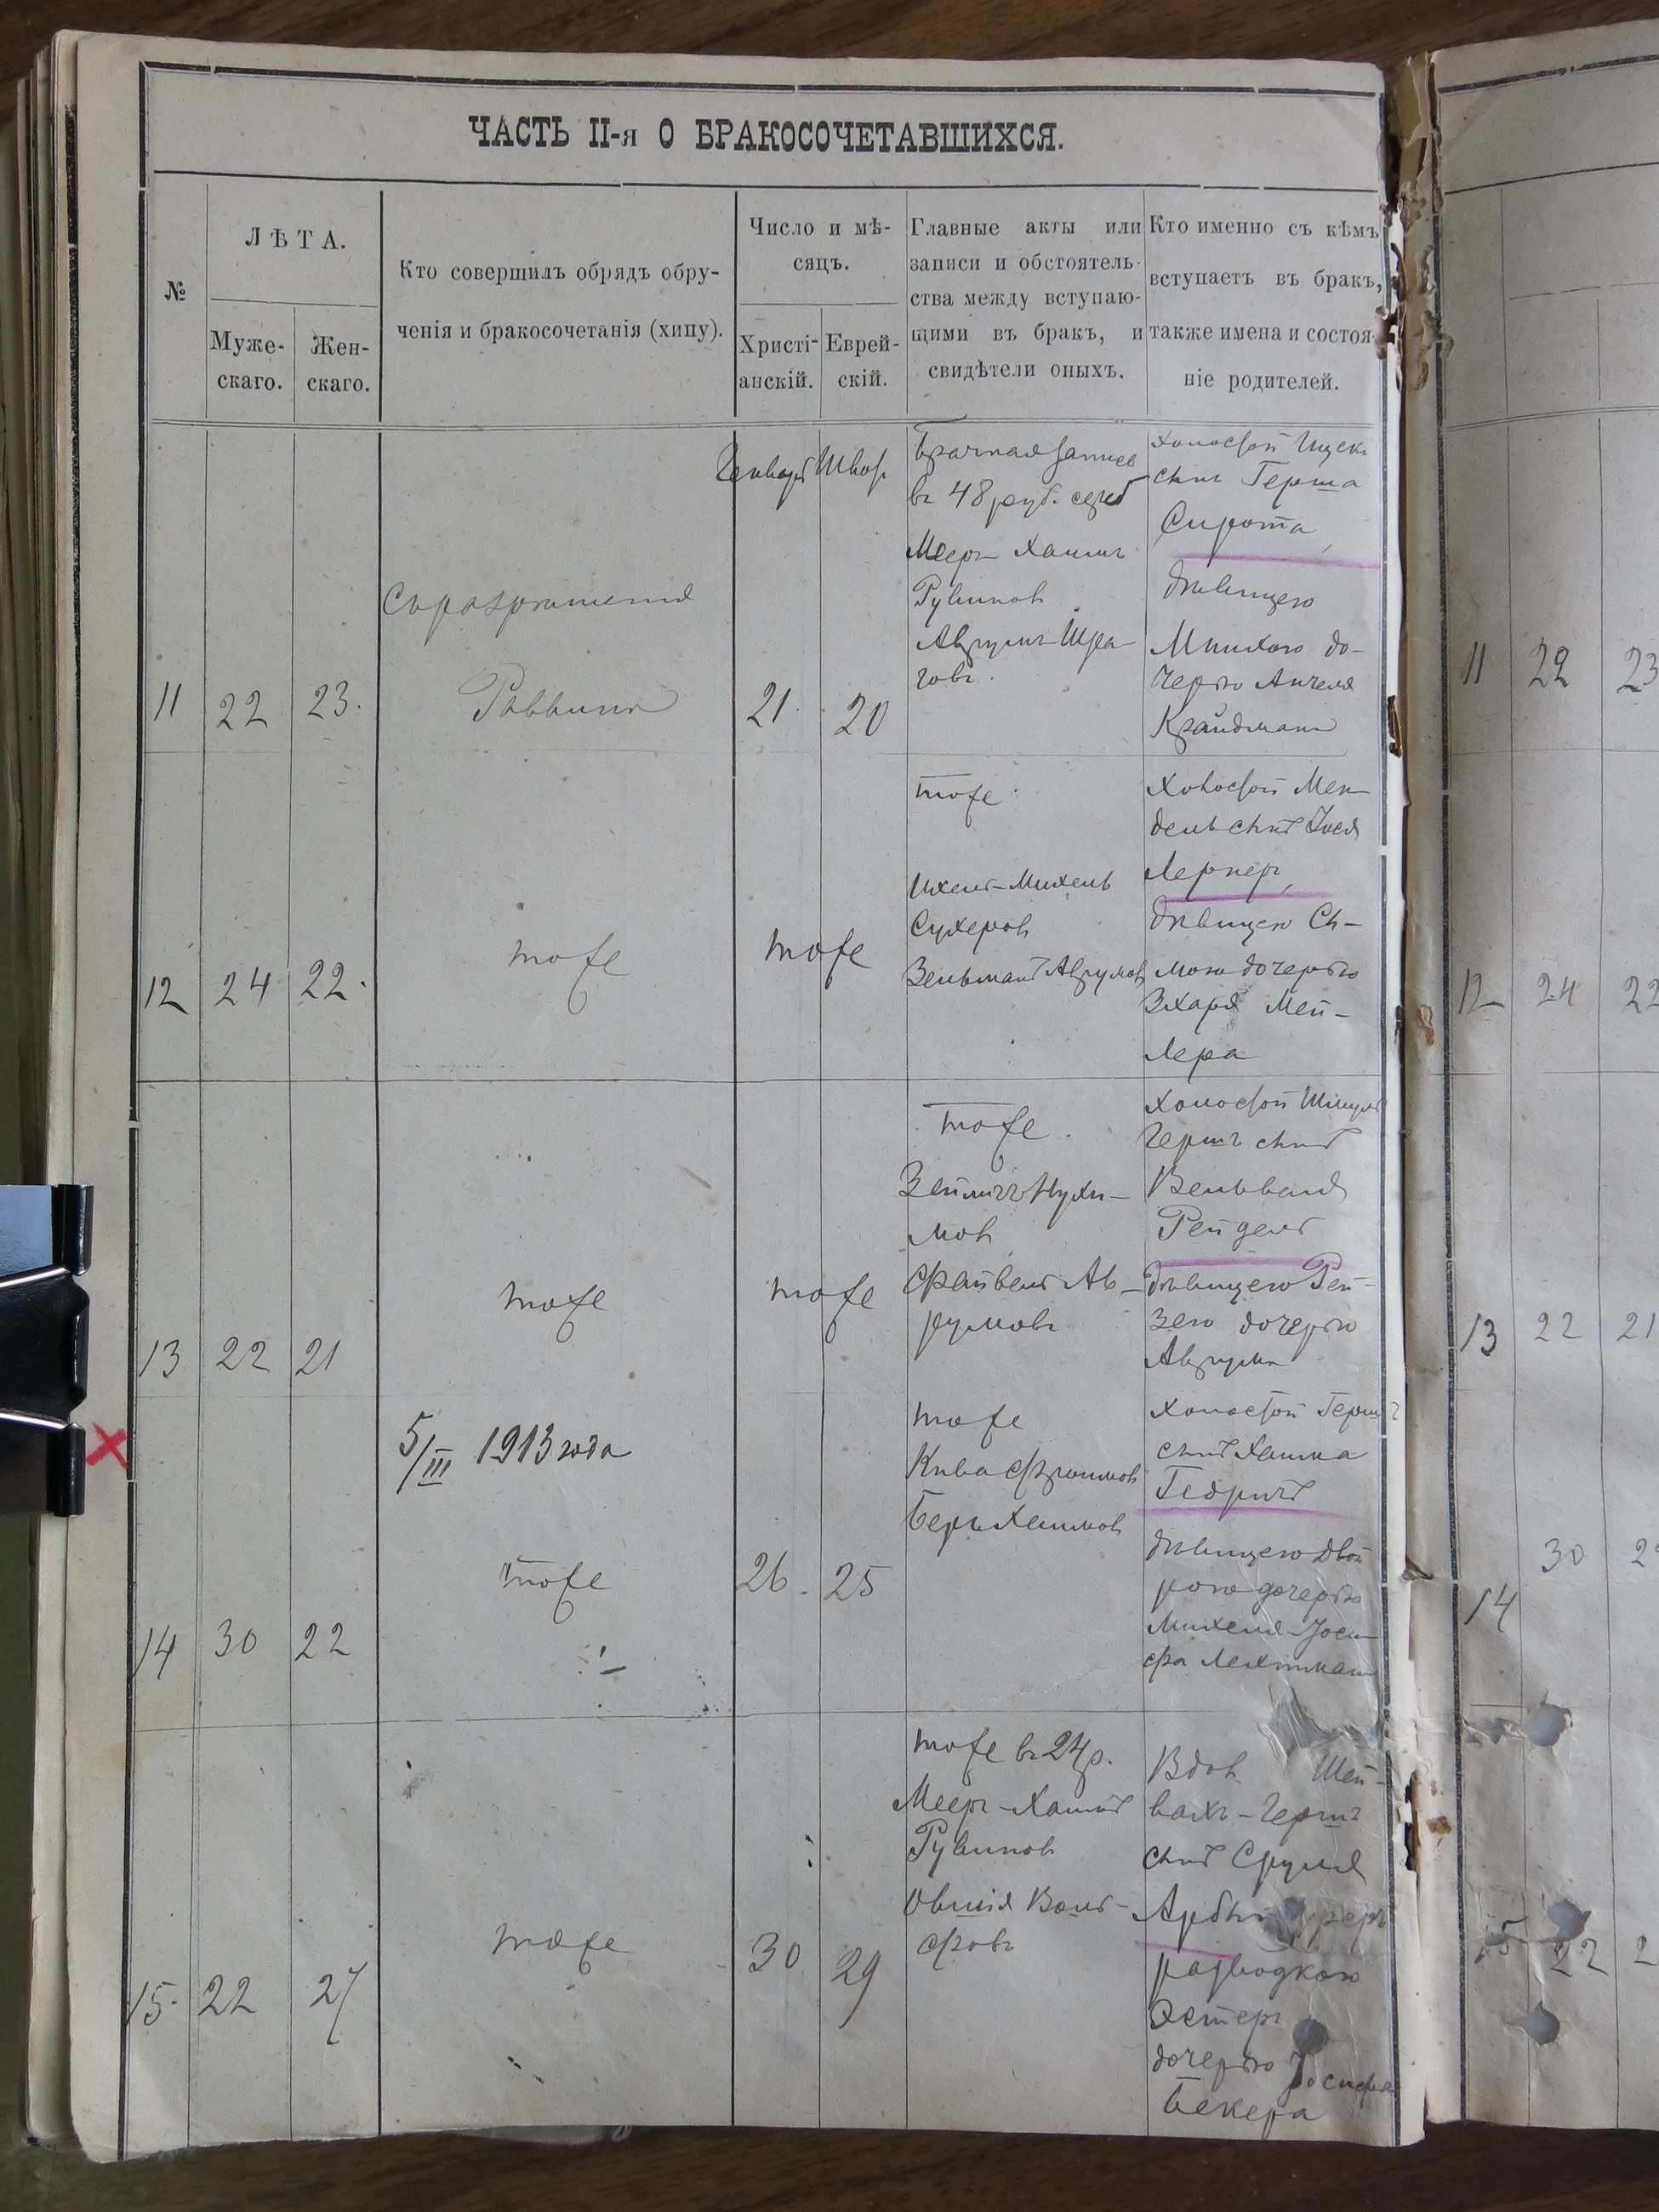 ЧАСТЬ II-я О БРАКОСОЧЕТАВШИХСЯ.
№
ЛѢТА.
Муже-
скаго.
Жен-
скаго.
Кто совершилъ обрядъ обру-
ченія и бракосочетанія (хипу).
Число и мѣ-
сяцъ.
Христі-
анскій.
Еврей-
скій.
Главные акты или
записи и обстоятель-
ства между вступаю-
щими въ бракъ, и
свидѣтели оныхъ.
Кто именно съ кѣмъ
вступаетъ въ бракъ,
также имена и состоя-
ніе родителей.
11
22
23.
Съ разрешенія
Раввина
Генварь
21
Шват
20
Брачная запись
въ 48 руб. сереб
Мееръ Хаимъ
Рувинов
Аврумъ Шра-
говъ
холостой Ицек
сынъ Герша
Сирота,
дѣвицею
Миндлою до-
черью Анчеля
Крайдмана
12
24
22.
тоже
тоже
тоже
Ихель-Михель
Сухеров
Зельманъ Аврумов
Холостой Мен-
дель сынъ Іося
Лернеръ,
дѣвицею Сѣ-
мою дочерью
Зхаря Мей-
лера
13
22
21
тоже
тоже
тоже.
Зейлигъ Нухи-
мов
Файвель Ав-
румовъ
холостой Шмуль
Гершъ сынъ
Вельвеля
Рейдель
дѣвицею Рей-
зею дочерью
Аврума
14
30
22
5/III 1913 года
тоже
26.
25
тоже
Кива Фроимов
Беръ Хаимов
холостой Гершъ
сынъ Хаима
Гедричъ
дѣвицею Двой
рою дочерью
Михеля-Іоси-
фа Лехтман
15.
22
27
тоже
30
29
тоже въ 24 р.
Мееръ-Хаимъ
Рувинов
Овшія Воль-
фовъ
Вдов Шей-
вахъ-Гершъ
сынъ Сруля
разводкою
Эстеръ
дочерью Іосифа
Бекера
11
22
23
12
24
22
13
22
21
14
30
15
22